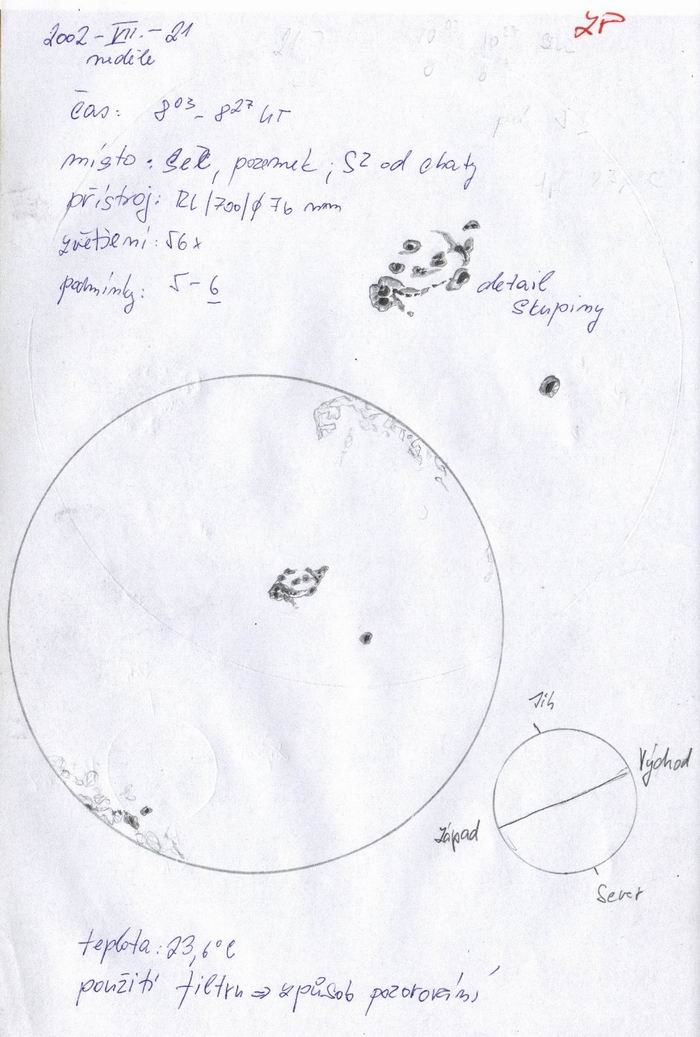 ZP
2002 - VII. - 21
neděle
čas: 8 03 - 8 27 UT
místo: Seč, pozemek, SZ od chaty
přístroj: RL/700/φ 76 mm
zvětšení: 56x
podmínky: 5 - 6
detail
skupiny
Jih
Východ
Západ
Sever
teplota: 23,6°C
použití filtru ⇒ způsob pozorování